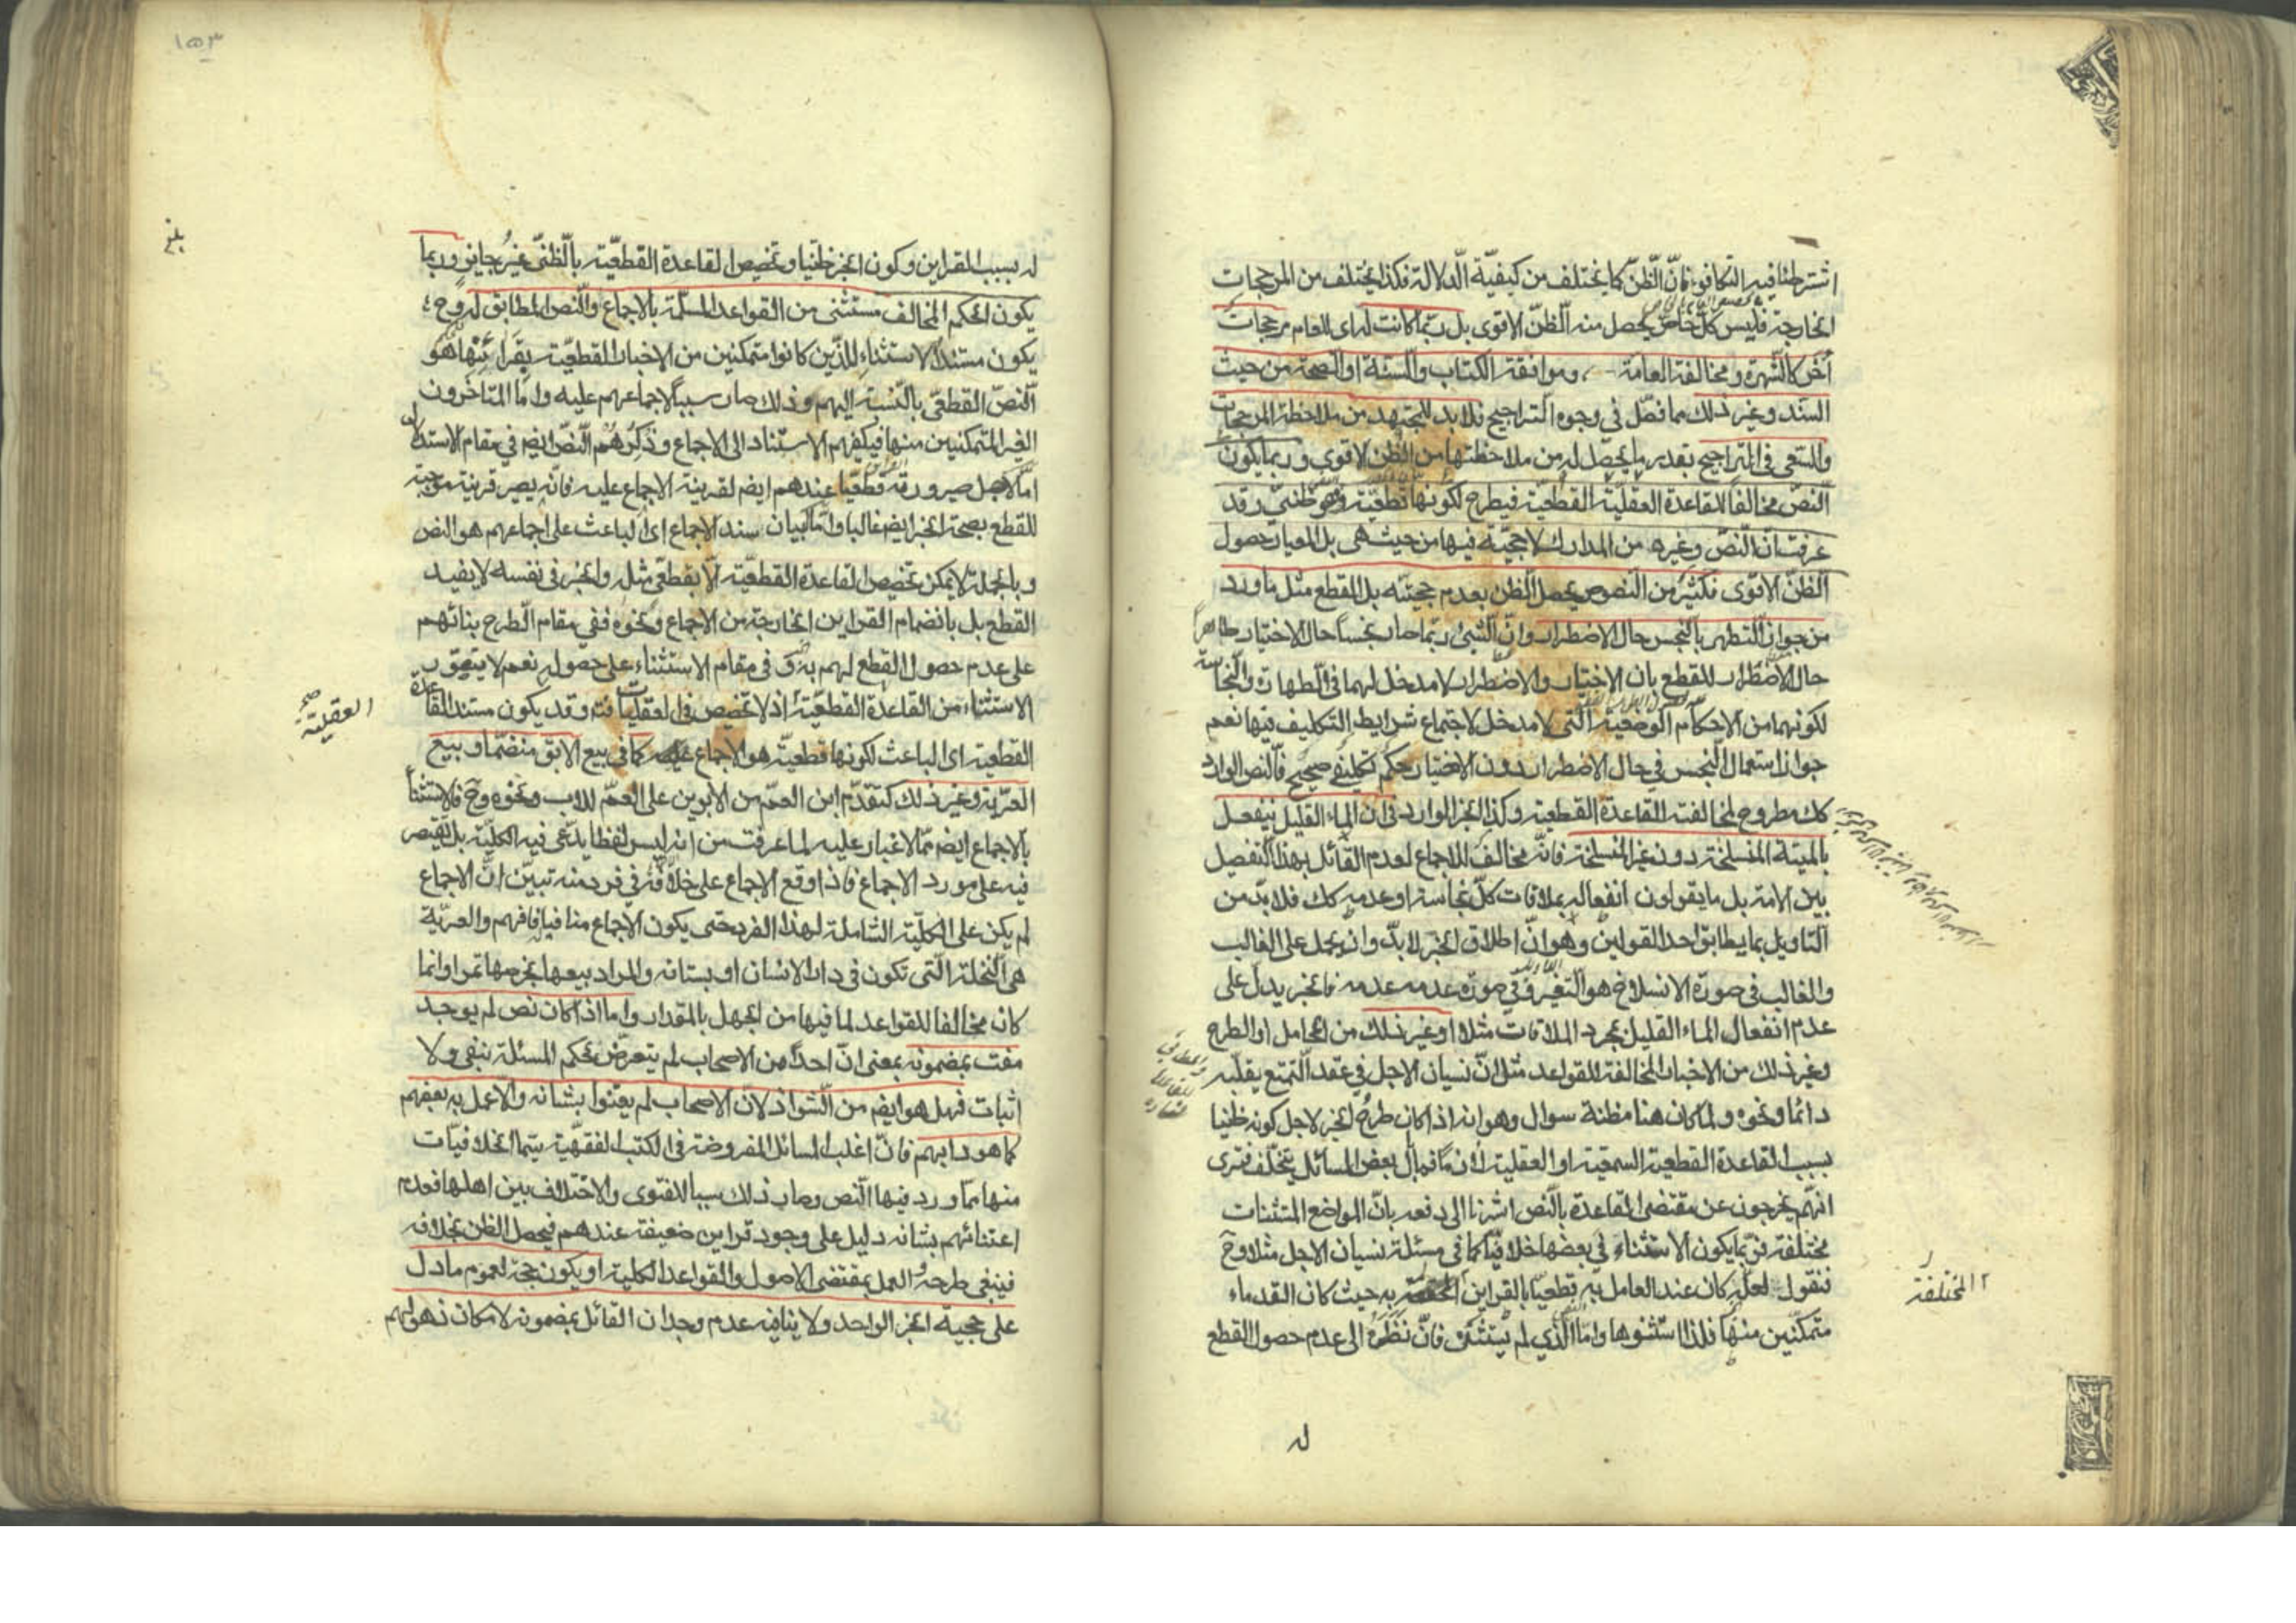 اشترطنا فيه التكافؤ فانّ الظنّ كما يختلف من كيفيّة الدلالة فكذا يختلف من المرجحات
الخارجة فليس كلّ خاص يحصل منه الظنّ الاقوى بل ربّما كانت له اى للعام مرجحات
أخر كالشهرة ومخالفة العامة وموافقة الكتاب والسنة او الصحة من حيث
السند وغير ذلك مما فصّل فى وجوه التراجيح فلابد للمجتهد من ملاحظة المرجحات
والسّعى فى التراجيح بقدر ما يحصل له من ملاحظتها من الظن الاقوى وربما يكون
النصّ مخالفاً للقاعدة العقليّة القطعيّة فيطرح لكونها قطعيّة وهو ظنىّ وقد
عرفت انّ النصّ وغيره من المدارك لا حجيّة فيها من حيث هى بل المعيار حصول
الظنّ الاقوى فكثيرٌ من النصوص يحصل الظن بعدم حجيّته بل القطع مثل ما ورد
من جواز التطهر بالنجس حال الاضطرار وانّ الشىء ربّما صار نجساً حال الاختيار طاهراً
حال الاضطرار للقطع بان الاختيار والاضطرار لا مدخل لهما فى الطهارة والنجاسة
لكونهما من الاحكام الوضعية الّتى لا مدخل لاجتماع شرايط التكليف فيها نعم
جواز استعمال النجس فى حال الاضطرار دون الاختيار حكم تكليفى صحيح فالنص الوارد
كك مطروح لمخالفته للقاعدة القطعية وكذا الخبر الوارد فى ان الماء القليل ينفعل
بالميتة المنسلخة دون غير المنسلخة فانّه مخالف للاجماع لعدم القائل بهذا التفصيل
بين الامة بل ما يقولون انفعاله بملاقات كلّ نجاسة او عدمه كك فلابدّ من
التاويل بما يطابق احد القولين وهو انّ اطلاق الخبر لابدّ وان يحمل على الغالب
والغالب فى صورة الانسلاخ هو التغيّر وفى صورة عدمه عدمه فالخبر يدلّ على
عدم انفعال الماء القليل بمجرد الملاقات مثلا او غير ذلك من المحامل او الطرح
وغير ذلك من الاخبار المخالفة للقواعد مثل انّ نسيان الاجل فى عقد التمتع يقلّبه
دائما ونحوه ولما كان هنا مظنة سوال وهو انه اذا كان طرح الخبر لاجل كونه ظنيا
بسبب القاعدة القطعية السمعية او العقلية فما بال بعض المسائل يتخلّف فنرى
انهم يخرجون عن مقتضى القاعدة بالنص اشرنا الى دفعه بانّ المواضع المستثنات
مختلفة فربّما يكون الاستثناء فى بعضها خلافيّا كما فى مسئلة نسيان الاجل مثلا وح
فنقول لعلّه كان عند العامل به قطعيّا بالقراين به حيث كان القدماء
متمكّنين منها فلذا استثنوها واما الّذي لم يستثنه فانّ نظره الى عدم حصول القطع
المختلفة
له
١٥٣
بلغ
له بسبب القراين وكون الخبر ظنيّا وتخصيص القاعدة القطعيّة بالظنىّ غير جايز وربما
يكون الحكم المخالف مستثنى من القواعد المسلّمة بالاجماع والنص المطابق له وح
يكون مستند الاستثناء للذين كانوا متمكنين من الاخبار القطعيّة بقرائنها هو
النصّ القطعىّ بالنسبة اليهم وذلك صار سببا لاجماعهم عليه وامّا المتاخرون
الغير المتمكنين منها فيكفيهم الاستناد الى الاجماع وذكرهم النصّ ايضم فى مقام الاستدلال
امّا لاجل صيرورته قطعيّا عندهم ايضم لقرينة الاجماع عليه فانّه يصير قرينة موجبة
للقطع بصحة الخبر ايضم غالبا وامّا لبيان سند الاجماع اى الباعث على اجماعهم هو النص
وبالجملة لا يمكن تخصيص القاعدة القطعيّة الّا بقطعىّ مثله والخبر فى نفسه لا يفيد
القطع بل بانضمام القراين الخارجة من الاجماع ونحوه ففى مقام الطرح بنائهم
على عدم حصول القطع لهم به وفى مقام الاستثناء على حصوله نعم لا يتصوّر
الاستثناء من القاعدة القطعيّة اذ لا تخصيص فى العقليّات وقد يكون مستند القاعدة
العقلية صح
القطعية اى الباعث لكونها قطعيّة هو الاجماع كما فى بيع الابق منضمّا وبيع
العريّة وغير ذلك كتقدّم ابن العمّ من الابوين على العمّ للاب ونحوه وح فالاستثناء
بالاجماع ايضم ممّا لا غبار عليه لما عرفت من انه ليس لفظا يدّعى فيه الكليّة بل يقتصر
فيه على مورد الاجماع فاذا وقع الاجماع على خلافه فى فرد منه تبيّن انّ الاجماع
لم يكن على الكليّة الشاملة لهذا الفرد حتى يكون الاجماع منافيا فافهم والعريّة
هى النخلة الّتى تكون فى دار الانسان او بستانه والمراد بيعها بخرصها تمرا وانما
كان مخالفا للقواعد لما فيها من الجهل بالمقدار واما اذا كان نص لم يوجد
مفت بمضمونه بمعنى انّ احداً من الاصحاب لم يتعرّض لحكم المسئلة بنفى ولا
اثبات فهل هو ايضم من الشواذ لانّ الاصحاب لم يعتنوا بشانه والّا عمل به بعضهم
كما هو دابهم فانّ اغلب المسائل المفروضة فى الكتب الفقهيّة سيّما الخلافيّات
منها ممّا ورد فيها النص وصار ذلك سببا للفتوى والاختلاف بين اهلها فعدم
اعتنائهم بشانه دليل على وجود قراين ضعيفة عندهم فيحصل الظن بخلافه
فينبغى طرحه والعمل بمقتضى الاصول والقواعد الكلية او يكون حجة لعموم ما دل
على حجية الخبر الواحد ولا ينافيه عدم وجدان القائل بمضمونه لامكان ذهولهم